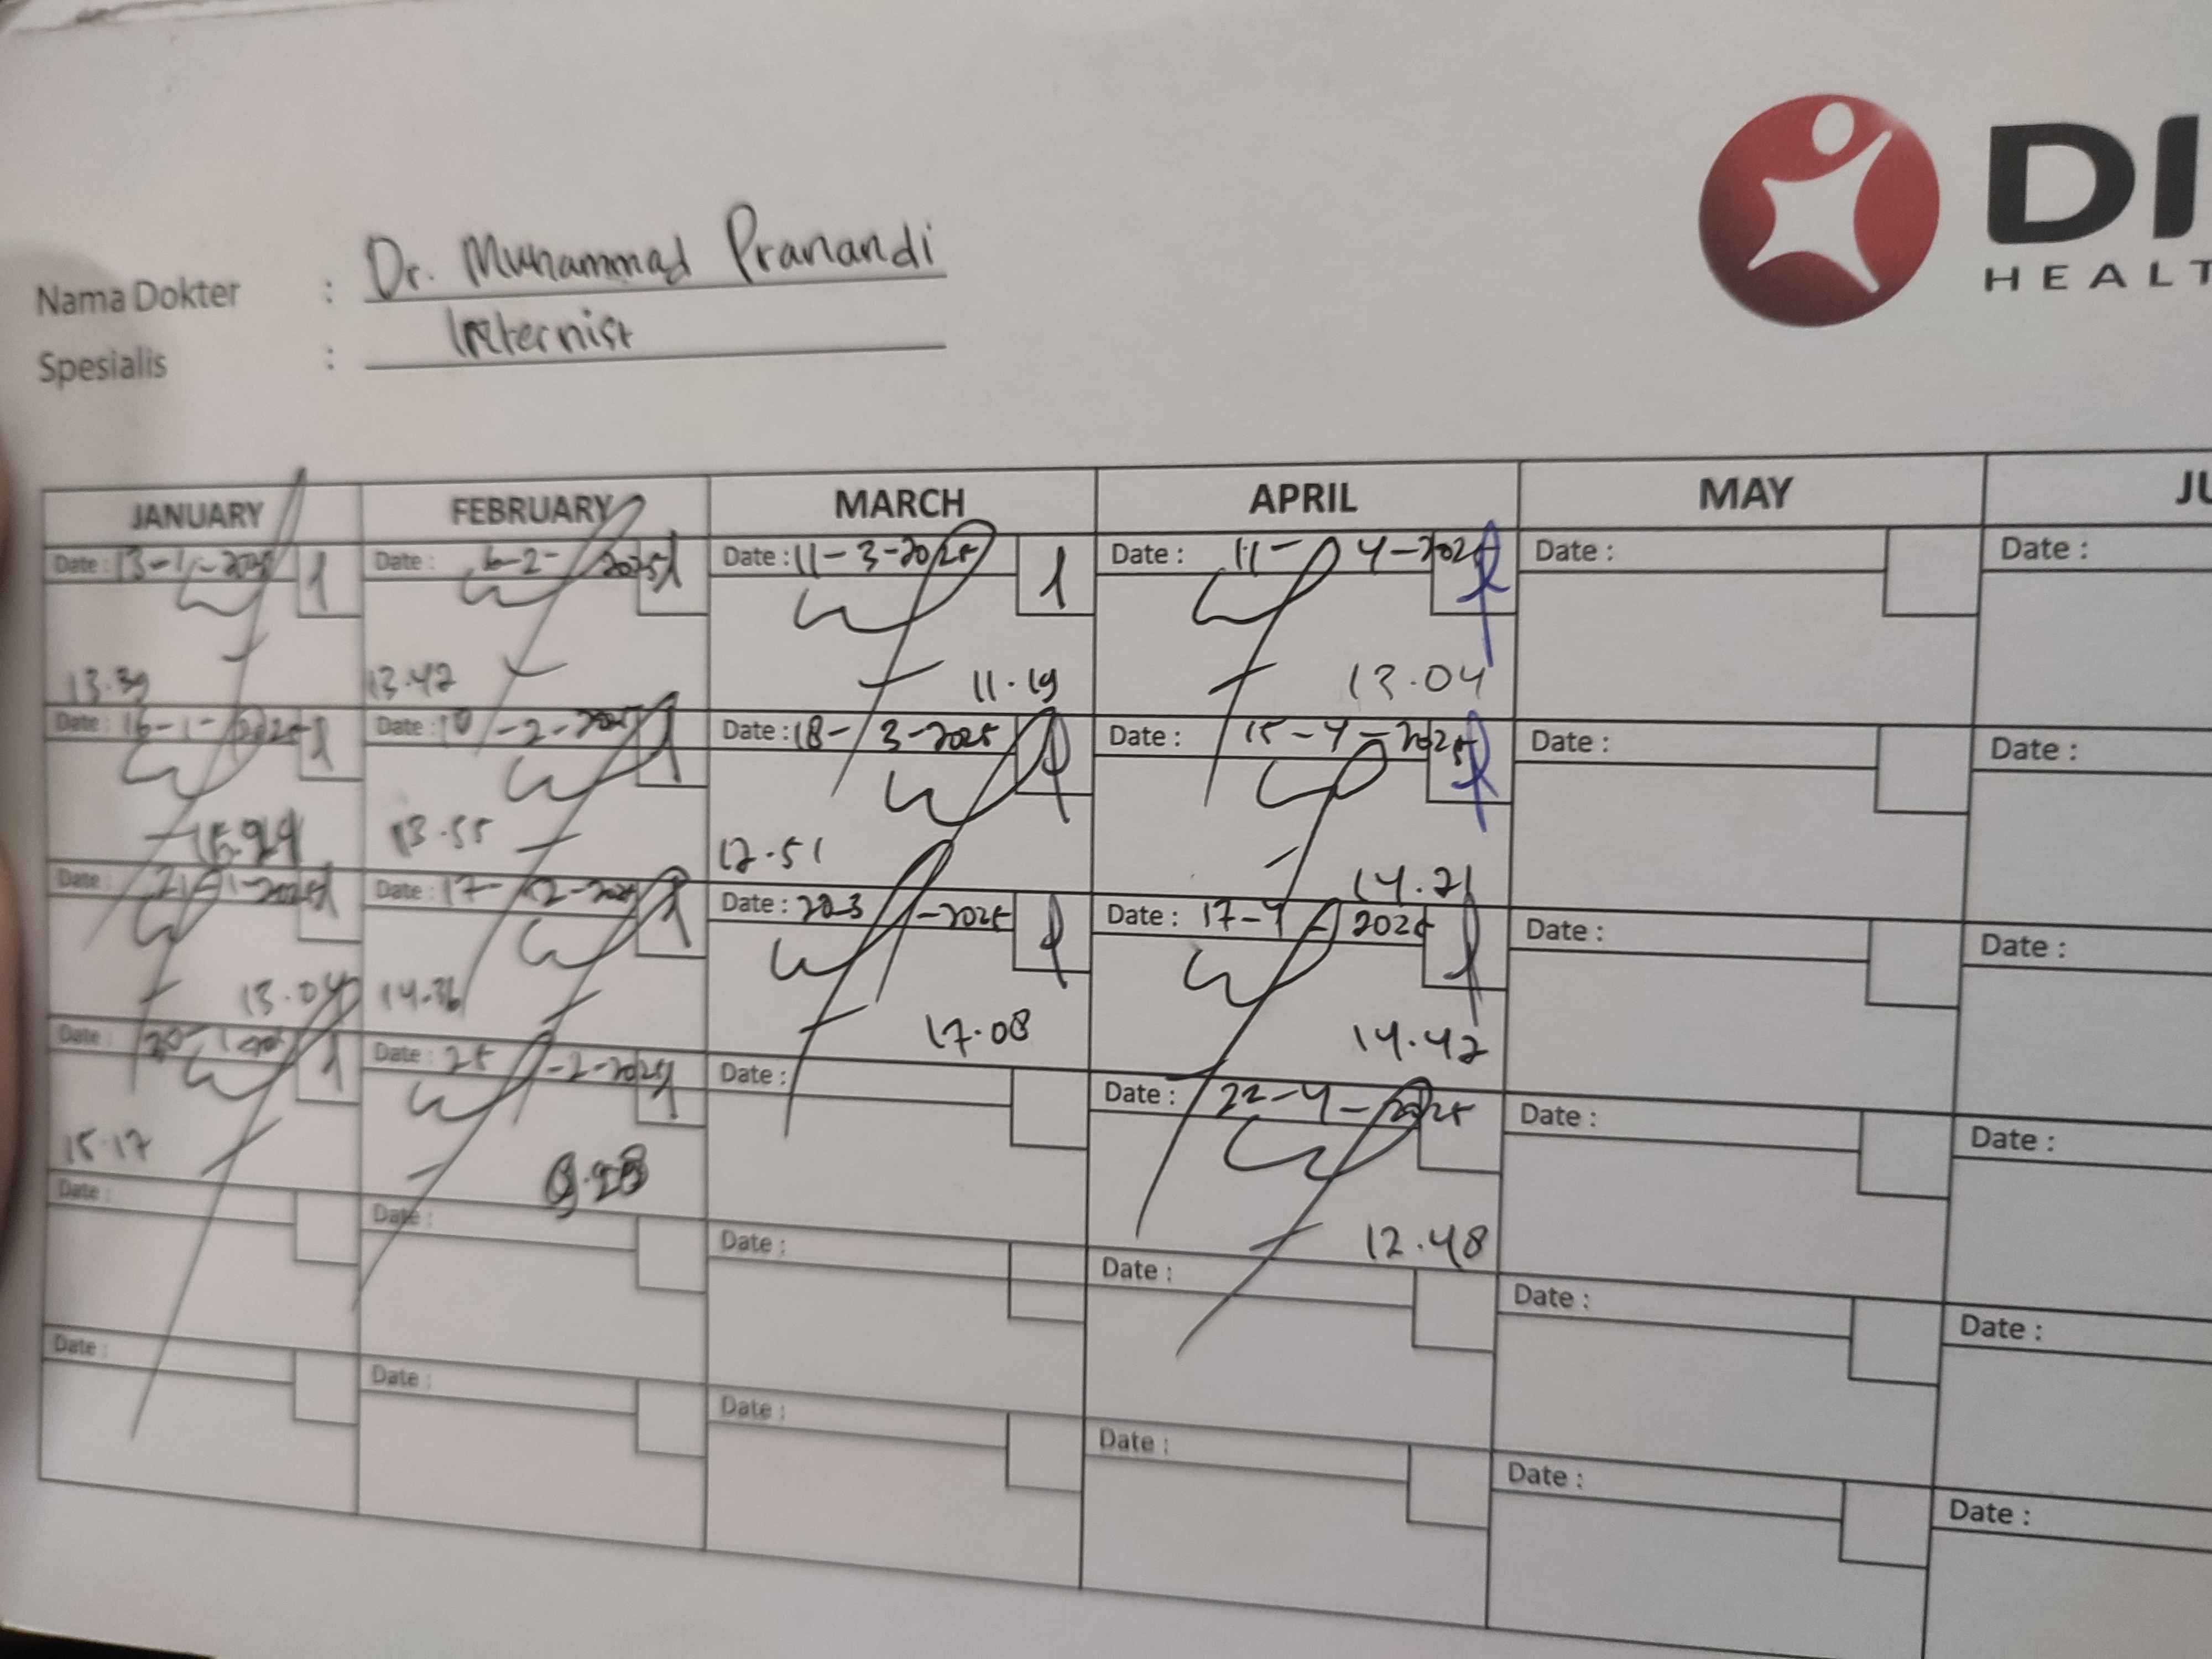 DI
HEALT
Nama Dokter : Dr. Muhammad Pranandi
Spesialis : Internist
JANUARY FEBRUARY MARCH APRIL MAY JU
Date : 13-1-2025 1 Date : 6-2-2025 1 Date : 11-3-2025 1 Date : 11-4-2025 Date : Date :
13.39 13.42 11.19 13.04
Date : 16-1-2025 1 Date : 10-2-2025 1 Date : 18-3-2025 Date : 15-4-2025 Date : Date :
13.55 12.51 14.21
Date : 21-1-2025 1 Date : 17-2-2025 1 Date : 20-3-2025 Date : 17-4-2025 Date : Date :
13.04 14.36 17.08 14.42
Date : 1 Date : 25-2-2025 1 Date : Date : 22-4-2025 Date : Date :
15.17 12.48
Date : Date : Date : Date : Date : Date :
Date : Date : Date : Date : Date : Date :